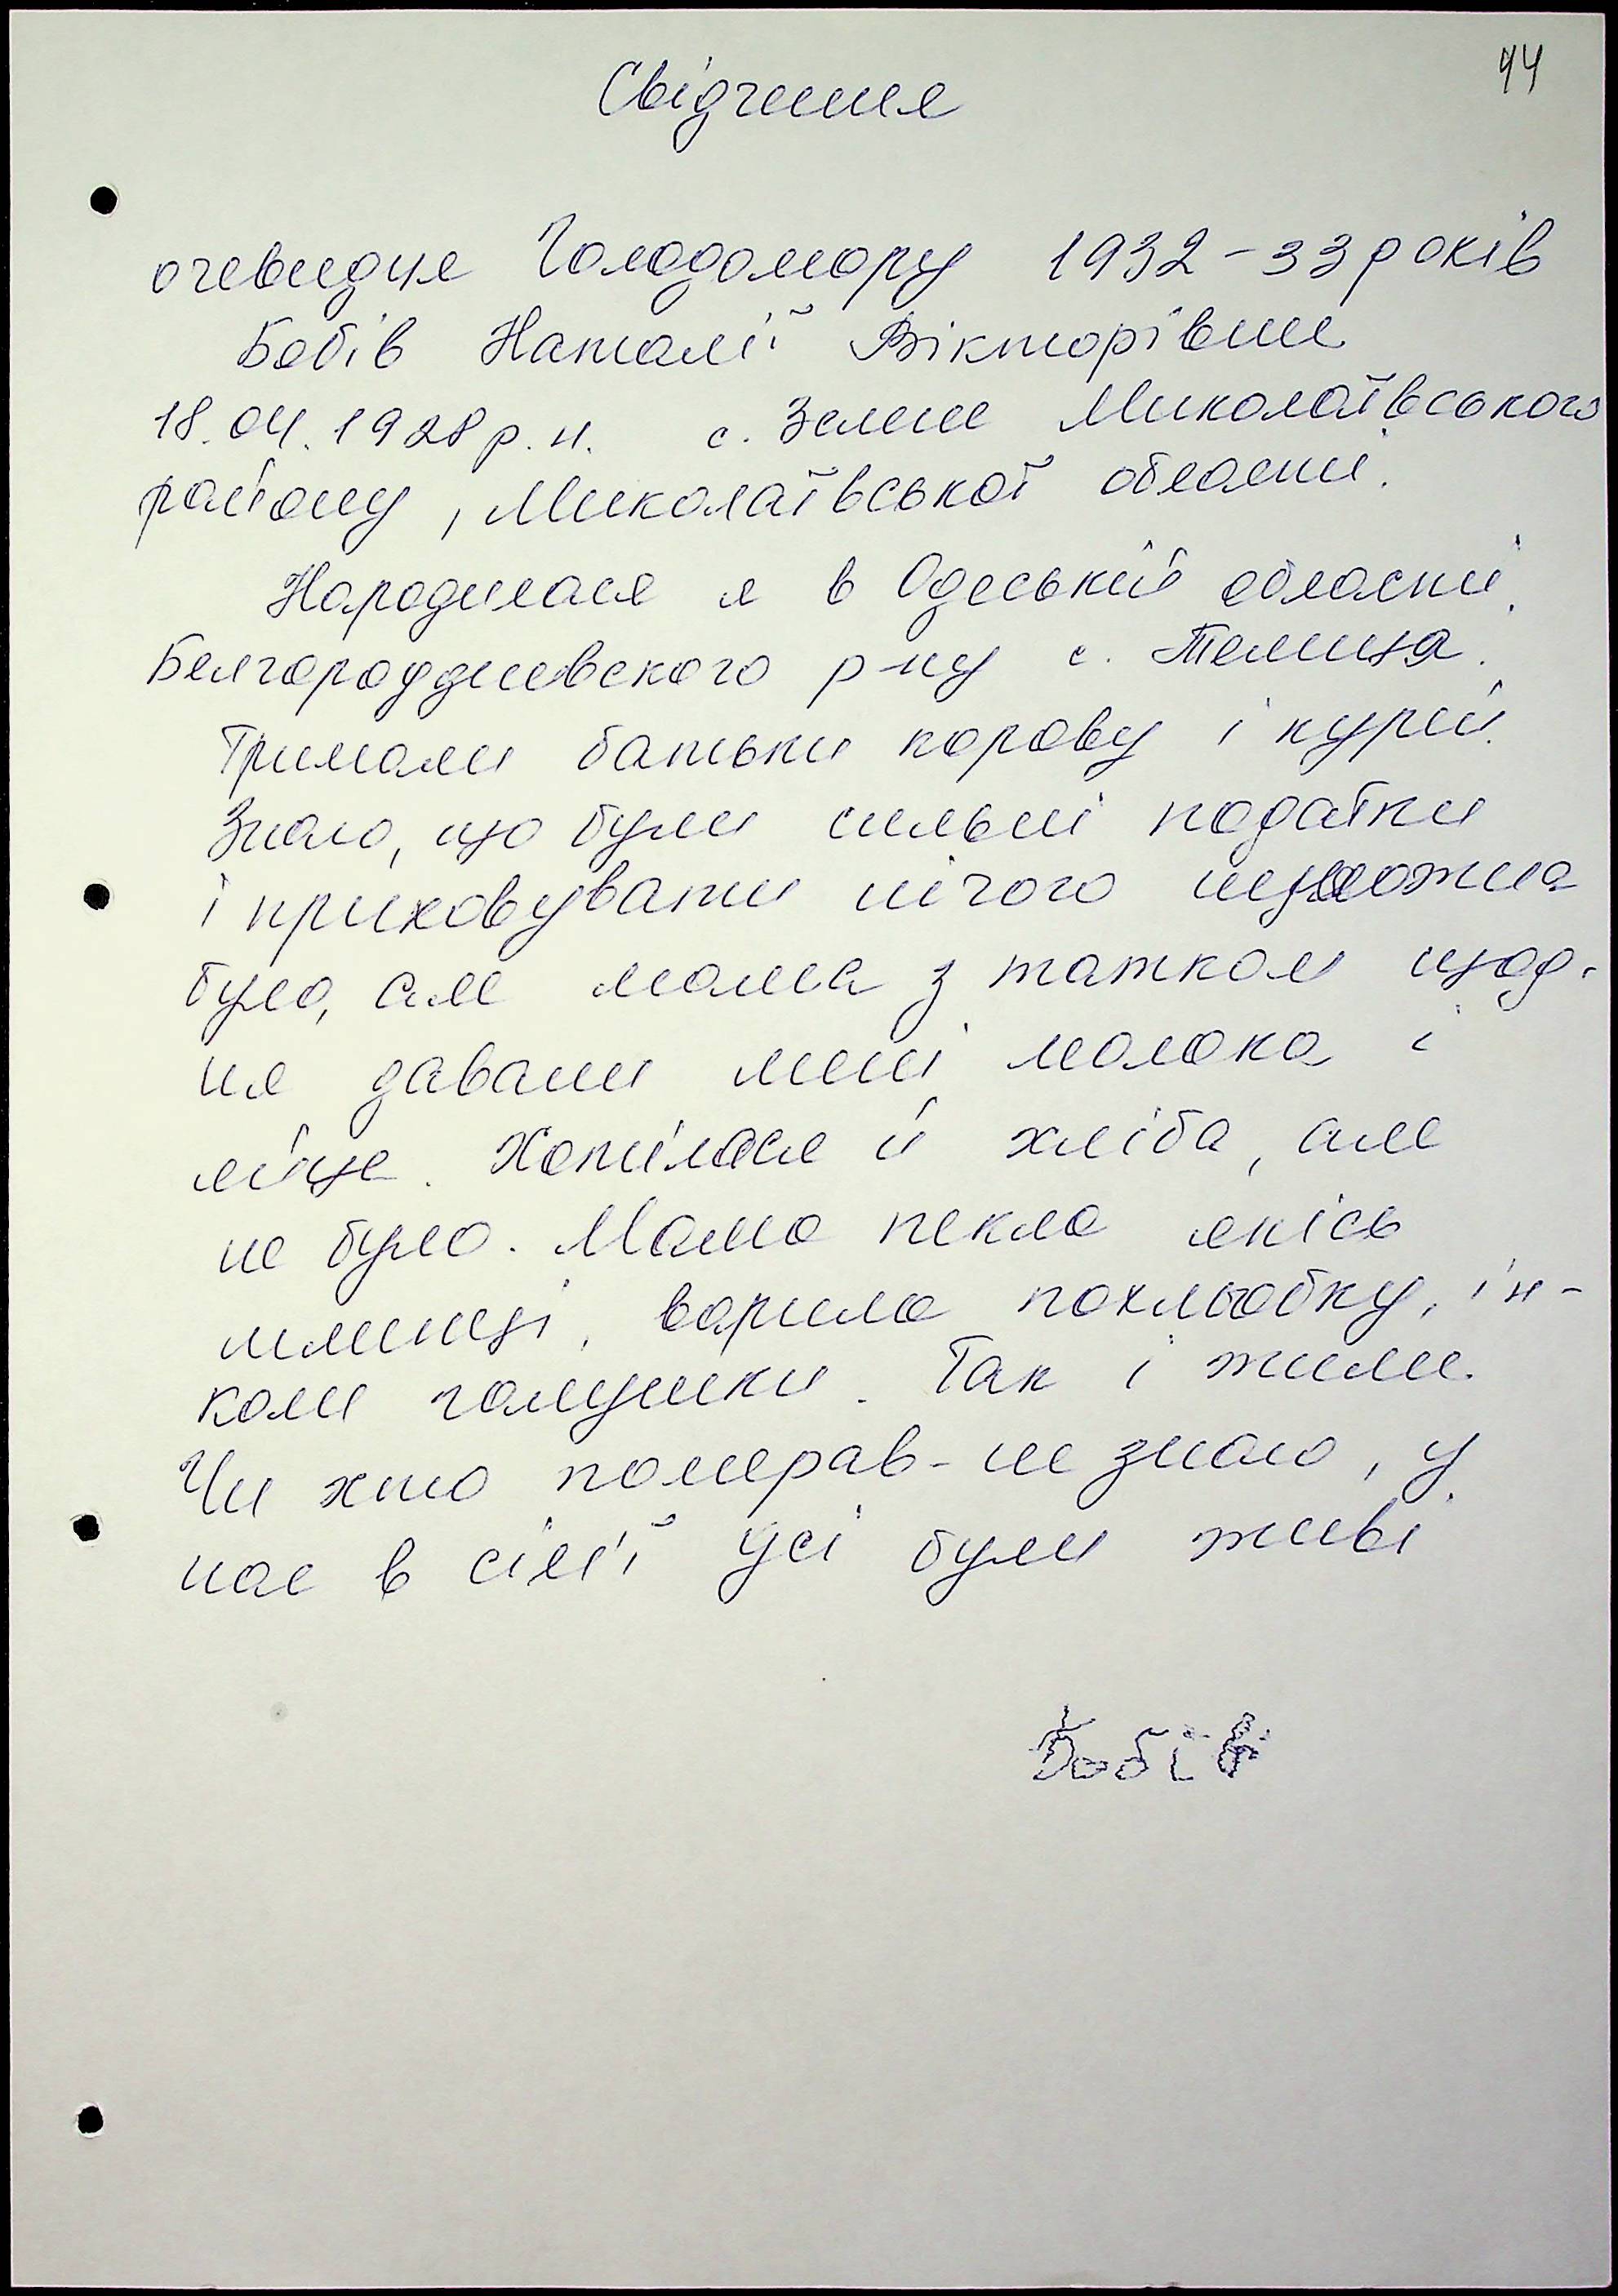 44
Свідчення
очевидця Голодомору 1932-33 років
Бобів Наталії Вікторівни
18.04.1928 р.н. с. Зелене Миколаївського
району, Миколаївської області.
Народилася я в Одеській області,
Белгороддневского р-ну с.
Тримали батьки корову і курей.
Знаю, що були сильні податки
і приховувати нічого неможна
було, але мама з татком щод-
ня давали мені молока і
яйце. Хотілося й хліба, але
не було. Мама пекла якісь
млинці, варила похльобку, ін-
коли галушки. Так і жили.
Чи хто помирав - не знаю, у
нас в сім'ї усі були живі
Бобів